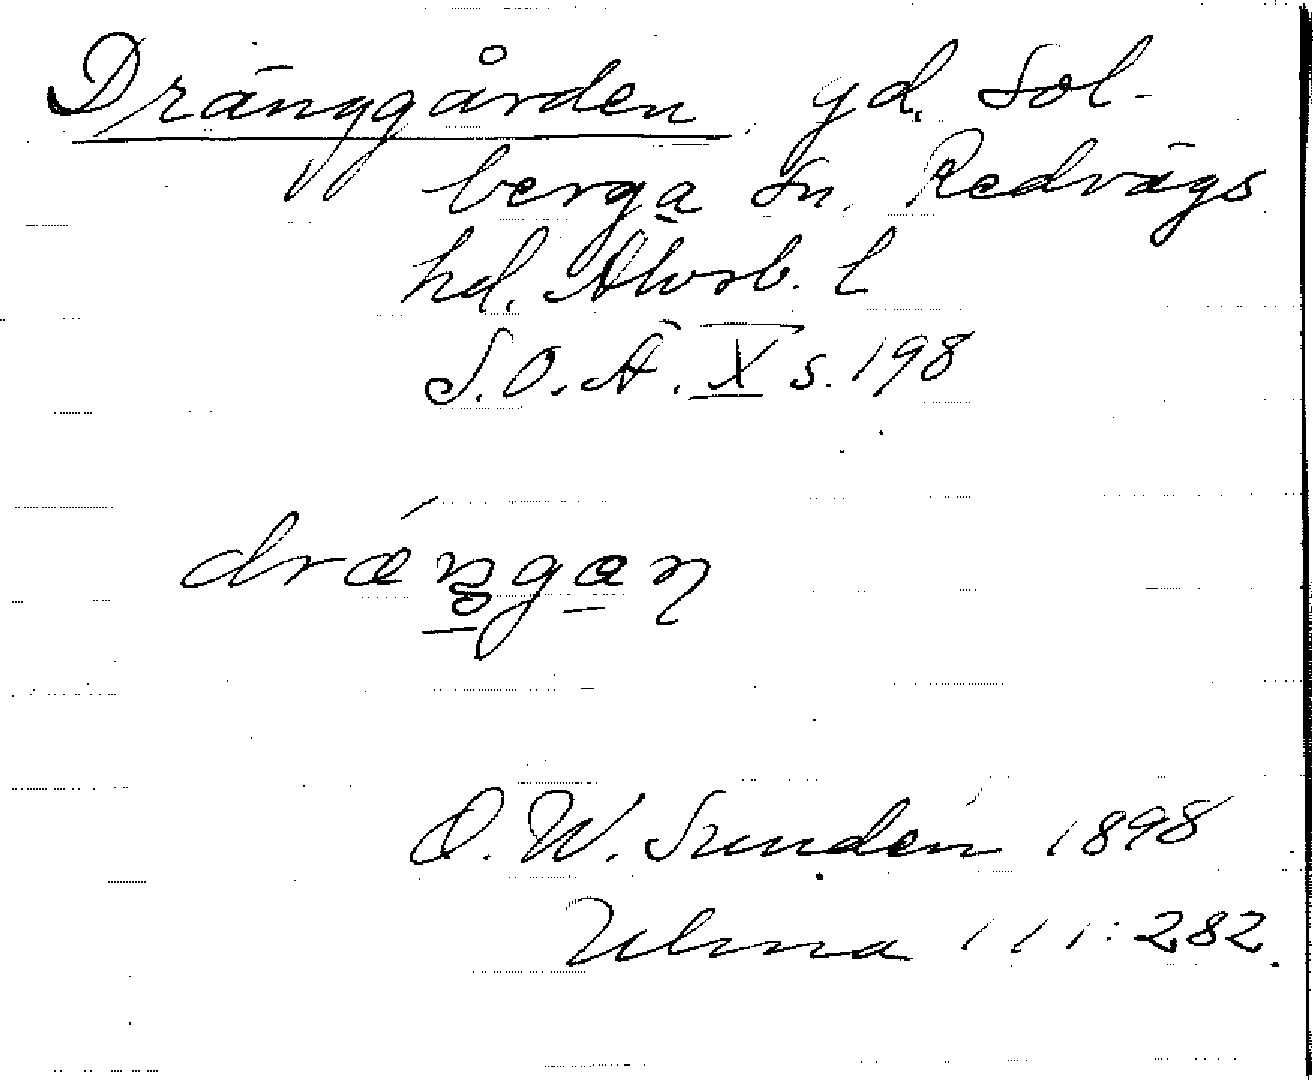 Dränggården gd. Sol-
berga sn. Redvägs
hd. Älvsb. l
S.O.Ä. X s. 198
drǽŋgaɳ
D. W. Sundén 1898
Ulma 111:282.